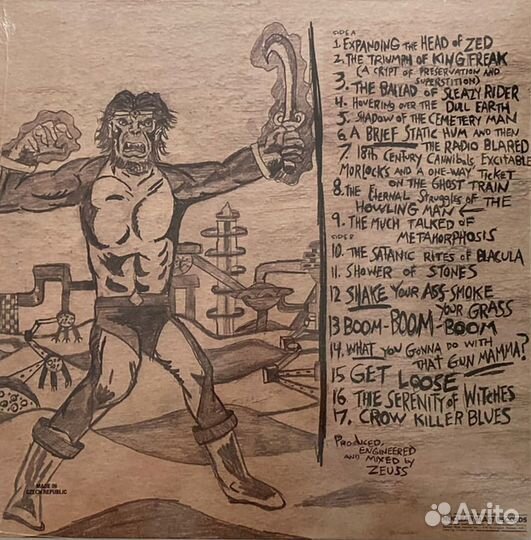 SIDE A
1. EXPANDING THE HEAD OF ZED
2. THE TRIUMPH OF KING FREAK
(A CRYPT OF PRESERVATION AND
SUPERSTITION)
3. THE BALLAD OF SLEAZY RIDER
4. HOVERING OVER THE DULL EARTH
5. SHADOW OF THE CEMETERY MAN
6. A BRIEF STATIC HUM AND THEN
THE RADIO BLARED
7. 18th CENTURY CANNIBALS, EXCITABLE
MORLOCKS AND A ONE-WAY TICKET
ON THE GHOST TRAIN
8. THE ETERNAL STRUGGLES OF THE
HOWLING MAN
9. THE MUCH TALKED OF
METAMORPHOSIS
SIDE B
10. THE SATANIC RITES OF BLACULA
11. SHOWER OF STONES
12 SHAKE YOUR ASS-SMOKE
YOUR GRASS
13 BOOM-BOOM-BOOM
14. WHAT YOU GONNA DO WITH
THAT GUN MAMMA?
15 GET LOOSE
16 THE SERENITY OF WITCHES
17. CROW KILLER BLUES
PRODUCED,
ENGINEERED
AND MIXED by
ZEUSS
MADE IN
CZECH REPUBLIC
Avito